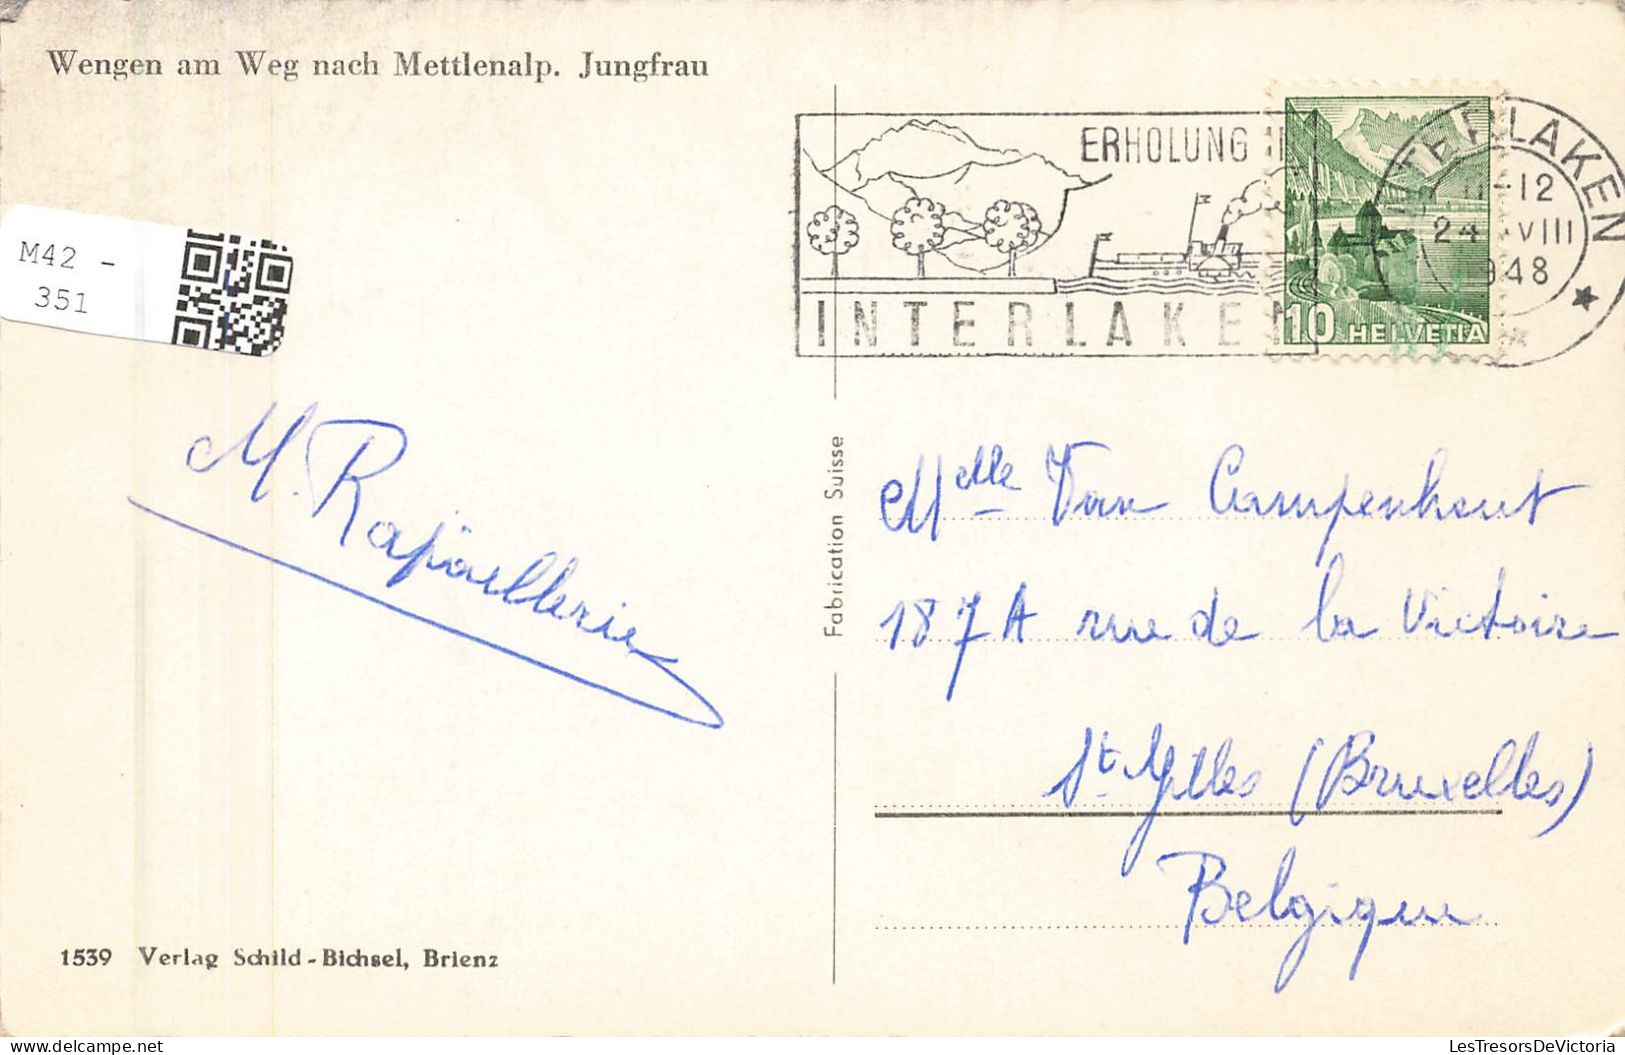 Wengen am Weg nach Mettlenalp. Jungfrau
M42 -
351
ERHOLUNG
INTERLAKEN
INTERLAKEN
11-12
24 VIII
1948
10 HELVETIA
M. Rapaëllerie
Fabrication Suisse
Melle Van Campenhout
187A rue de la Victoire
St. Gilles (Bruxelles)
Belgique
1539 Verlag Schild-Bichsel, Brienz
LesTresorsDeVictoria